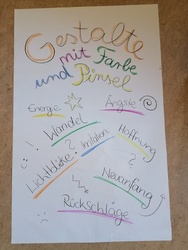 Gestalte
mit Farbe
und Pinsel
Energie
Ängste
Wandel
?
Hoffnung
Irritation
Lichtblicke
?
Neuanfang
Rückschläge